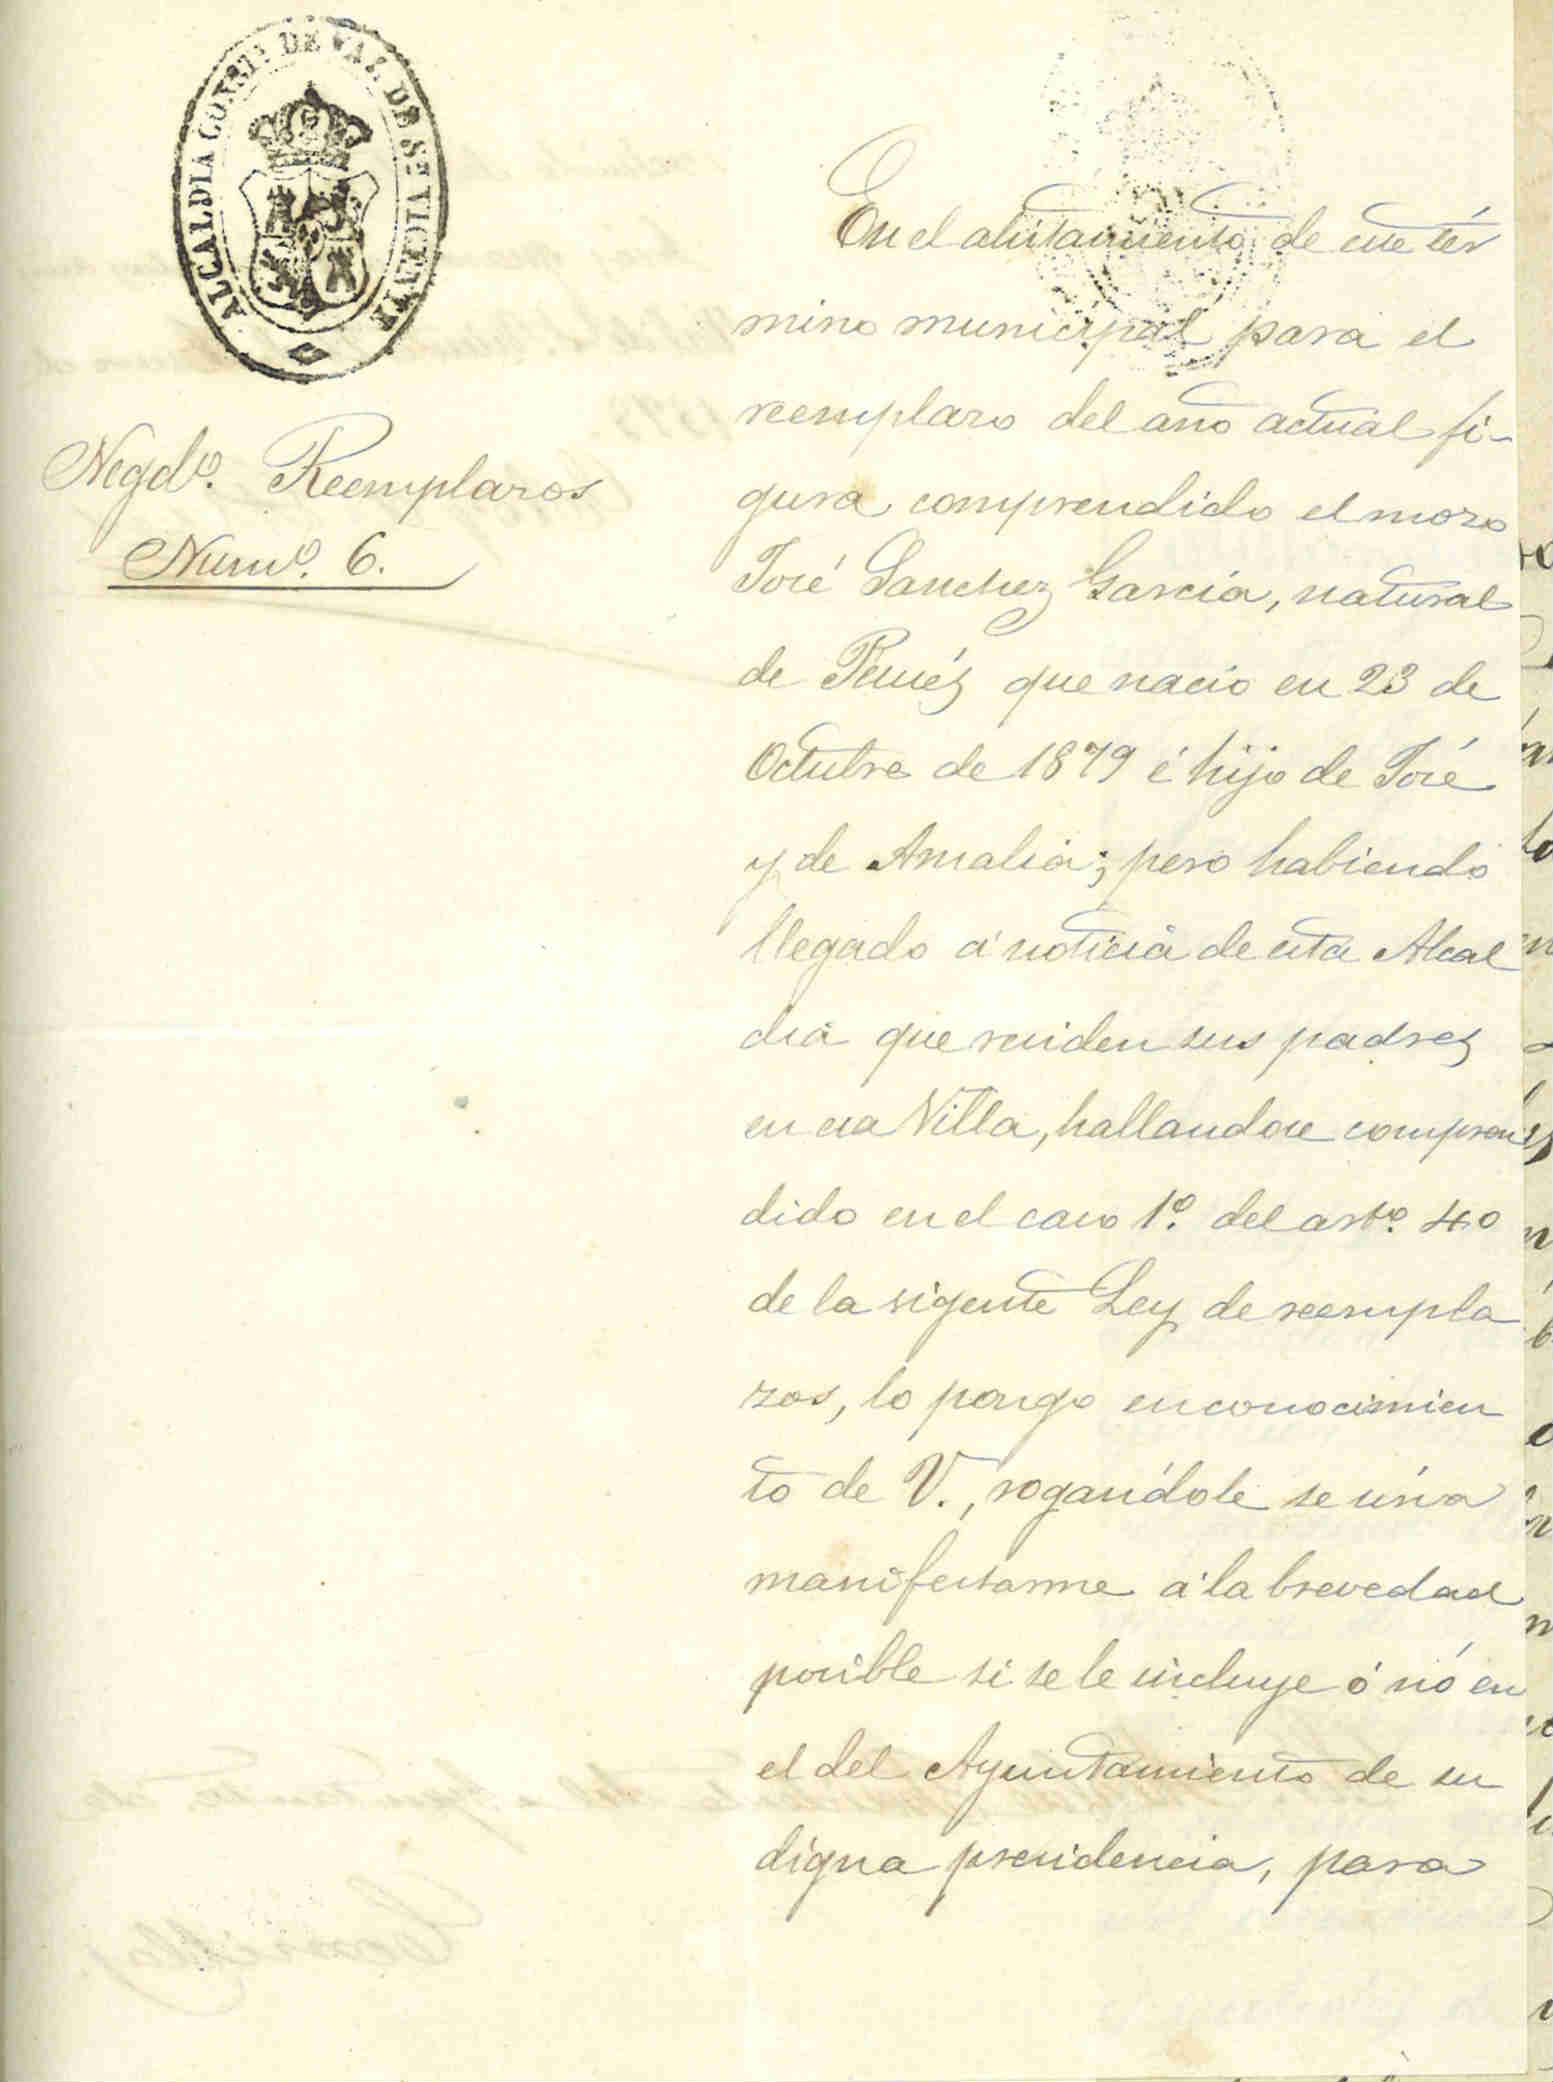 ALCALDIA CONSTL. DE VAL. DE Sn. VICENTE
Negdo. Reemplazos
Numo. 6.
En el alistamiento de este tér
mino municipal para el
reemplazo del año actual fi-
gura comprendido el mozo
José Sanchez Garcia, natural
de que nació en 23 de
Octubre de 1879 é hijo de José
y de Amalia; pero habiendo
llegado á noticia de esta Alcal
dia que residen sus padres
en esa Villa, hallandose compren
dido en el caso 1º. del arto. 40
de la vigente Ley de reempla
zos, lo pongo en conocimien
to de V., rogándole se sirva
manifestarme á la brevedad
posible si se le incluye ó nó en
el del Ayuntamiento de su
digna presidencia, para